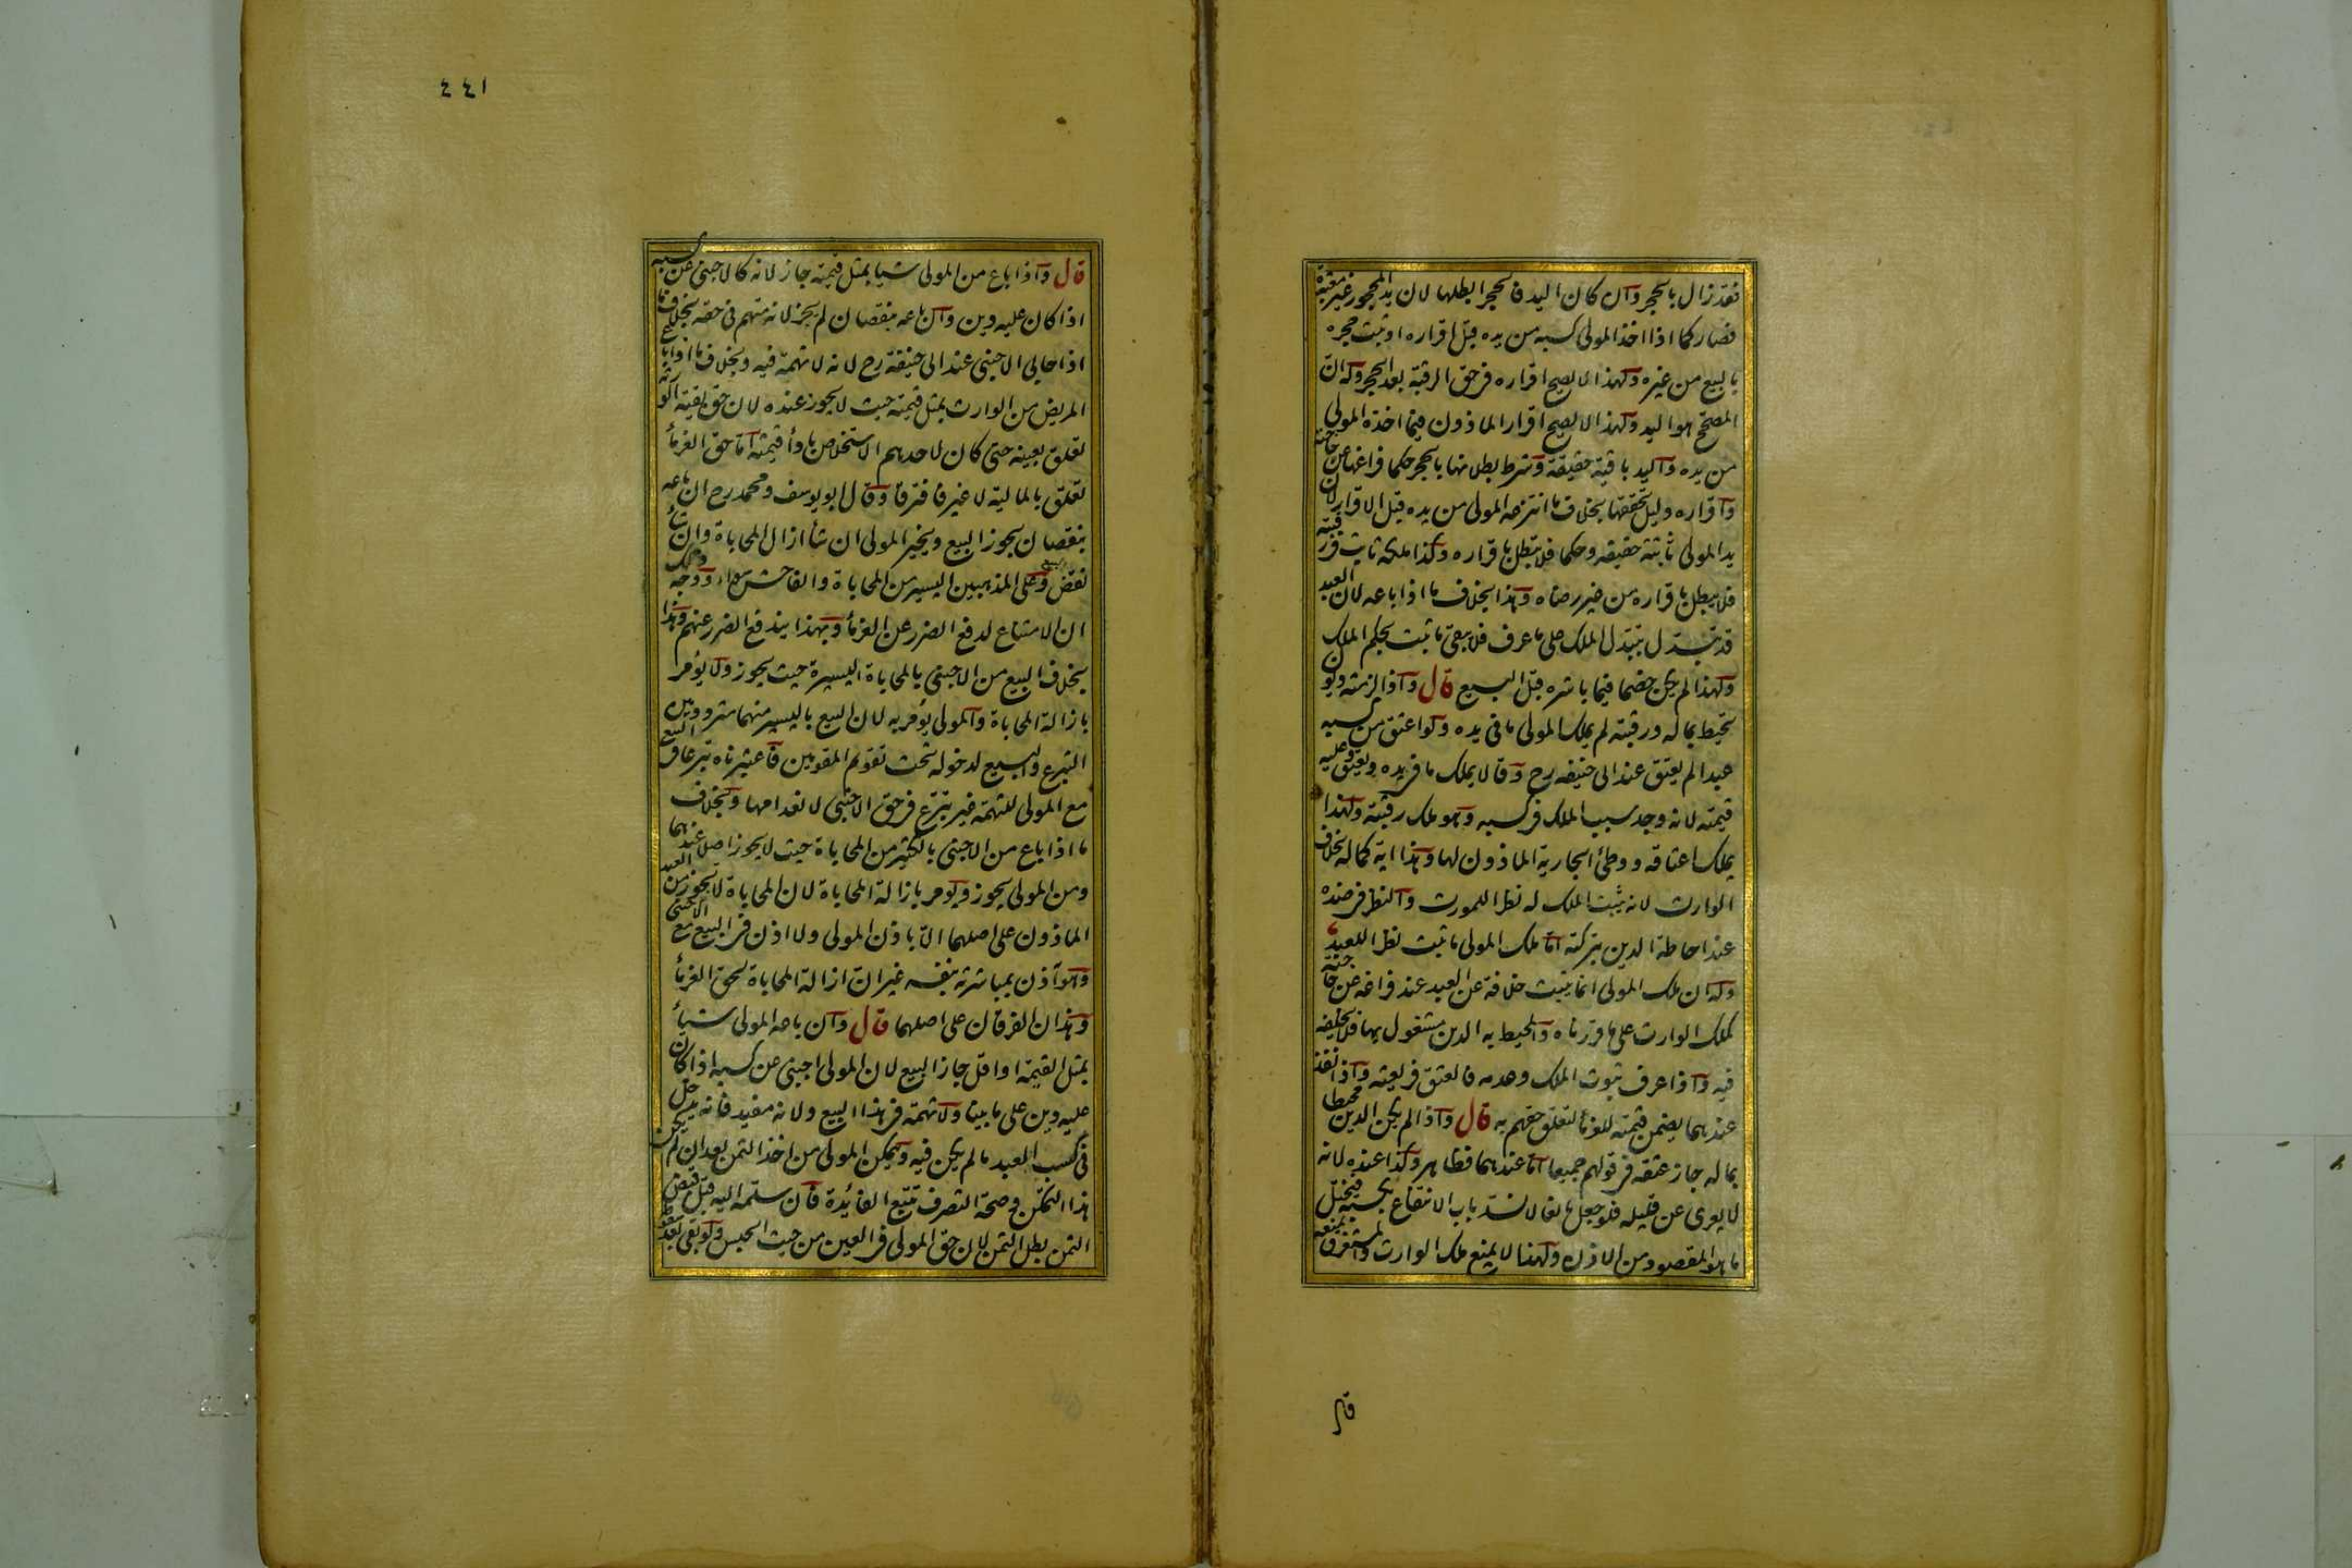 فقد زال بالحجر وان كان اليد فالحجر ابطلها لان يد المحجور غير معتبرة
فصار كما اذا اخذ المولى كسبه من يده قبل اقراره او ثبت حجره
بالبيع من غيره ولهذا لا يصح اقراره فى حق الرقبة بعد الحجر وله ان
المصحح هو اليد ولهذا لا يصح اقرار الماذون فيما اخذه المولى
من يده واليد باقية حقيقة وشرط بطلانها بالحجر حكما فراغها عن حاجته
واقراره دليل تحققها بخلاف ما انتزعه المولى من يده قبل الاقرار لان
يد المولى ثابتة حقيقه وحكما فلا تبطل باقراره وكذا ملكه ثابت فى رقبته
فلا يبطل باقراره من غير رضاه وهذا بخلاف ما اذا باعه لان العبد
قد تبدل بتبدل الملك على ما عرف فلا يبقى ما ثبت بحكم الملك
ولهذا لم يكن خصما فيما باشره قبل البيع قال واذا لزمته ديون
تحيط بماله ورقبته لم يملك المولى ما فى يده ولو اعتق من كسبه
عبدا لم يعتق عند ابى حنيفه رح وقالا يملك ما فى يده ويعتق وعليه
قيمته لانه وجد سبب الملك فى كسبه وهو ملك رقبته ولهذا
يملك اعتاقه ووطئ الجارية الماذون لها وهذا اية كماله بخلاف
الوارث لانه يثبت الملك له نظرا للمورث والنظر فى ضده
عند احاطة الدين بتركته اما ملك المولى ما ثبت نظرا للعبد
وله ان ملك المولى انما يثبت خلافة عن العبد عند فراغه عن حاجته
كملك الوارث على ما قررناه والمحيط به الدين مشغول بها فلا يخلفه
فيه واذا عرف ثبوت الملك وعدمه فالعتق فريعته واذا نفذ
عندهما يضمن قيمته للغرماء لتعلق حقهم به قال واذا لم يكن الدين محيطا
بماله جاز عتقه فى قولهم جميعا اما عندهما فظاهر وكذا عنده لانه
لا يعرى عن قليله فلو جعل مانعا لانسد باب الانتفاع بكسبه فيختل
ما هو المقصود من الاذن ولهذا لا يمنع ملك الوارث والمستغرق يمنعه
قال
٤٤١
قال واذا باع من المولى شيا بمثل قيمته جاز لانه كالاجنبى عن كسبه
اذا كان عليه دين وان باعه بنقصان لم يجز لانه متهم فى حقه بخلاف ما
اذا حابى الاجنبى عند ابى حنيفة رح لانه لا تهمة فيه وبخلاف ما اذا باع
المريض من الوارث بمثل قيمته حيث لا يجوز عنده لان حق بقية الورثة
تعلق بعينه حتى كان لاحدهم الاستخلاص باداء قيمته اما حق الغرماء
تعلق بالمالية لا غير فافترقا وقال ابو يوسف ومحمد رح ان باعه
بنقصان يجوز البيع ويخير المولى ان شاء ازال المحاباة وان شاء
نقض البيع وعلى المذهبين اليسير من المحاباة والفاحش سواء ووجه ذلك
ان الامتناع لدفع الضرر عن الغرماء وبهذا يندفع الضرر عنهم وهذا
بخلاف البيع من الاجنبى بالمحاباة اليسيرة حيث يجوز ولا يؤمر
بازالة المحاباة والمولى يؤمر به لان البيع باليسير منهما متردد بين
التبرع والبيع لدخوله تحت تقويم المقومين فاعتبرناه تبرعا فى البيع
مع المولى للتهمة غير تبرع فى حق الاجنبى لانعدامها وبخلاف
ما اذا باع من الاجنبى بالكثير من المحاباة حيث لا يجوز اصلا عندهما
ومن المولى يجوز ويومر بازالة المحاباة لان المحاباة لا يجوز من العبد
الماذون على اصلهما الا باذن المولى ولا اذن فى البيع مع الاجنبى
وهو اذن بمباشرته بنفسه غير ان ازالة المحاباة لحق الغرماء
وهذان الفرقان على اصلهما قال وان باعه المولى شياء
بمثل القيمة او اقل جاز البيع لان المولى اجنبى عن كسبه اذا كان
عليه دين على ما بينا ولا تهمة فى هذا البيع ولانه مفيد فانه يدخل
فى كسب العبد ما لم يكن فيه ويمكن المولى من اخذ الثمن بعد ان لم يكن
هذا التمكن وصحة التصرف تتبع الفائدة فان سلمه اليه قبل قبض
الثمن بطل الثمن لان حق المولى فى العين من حيث الحبس ولو بقى بعد سقوطه